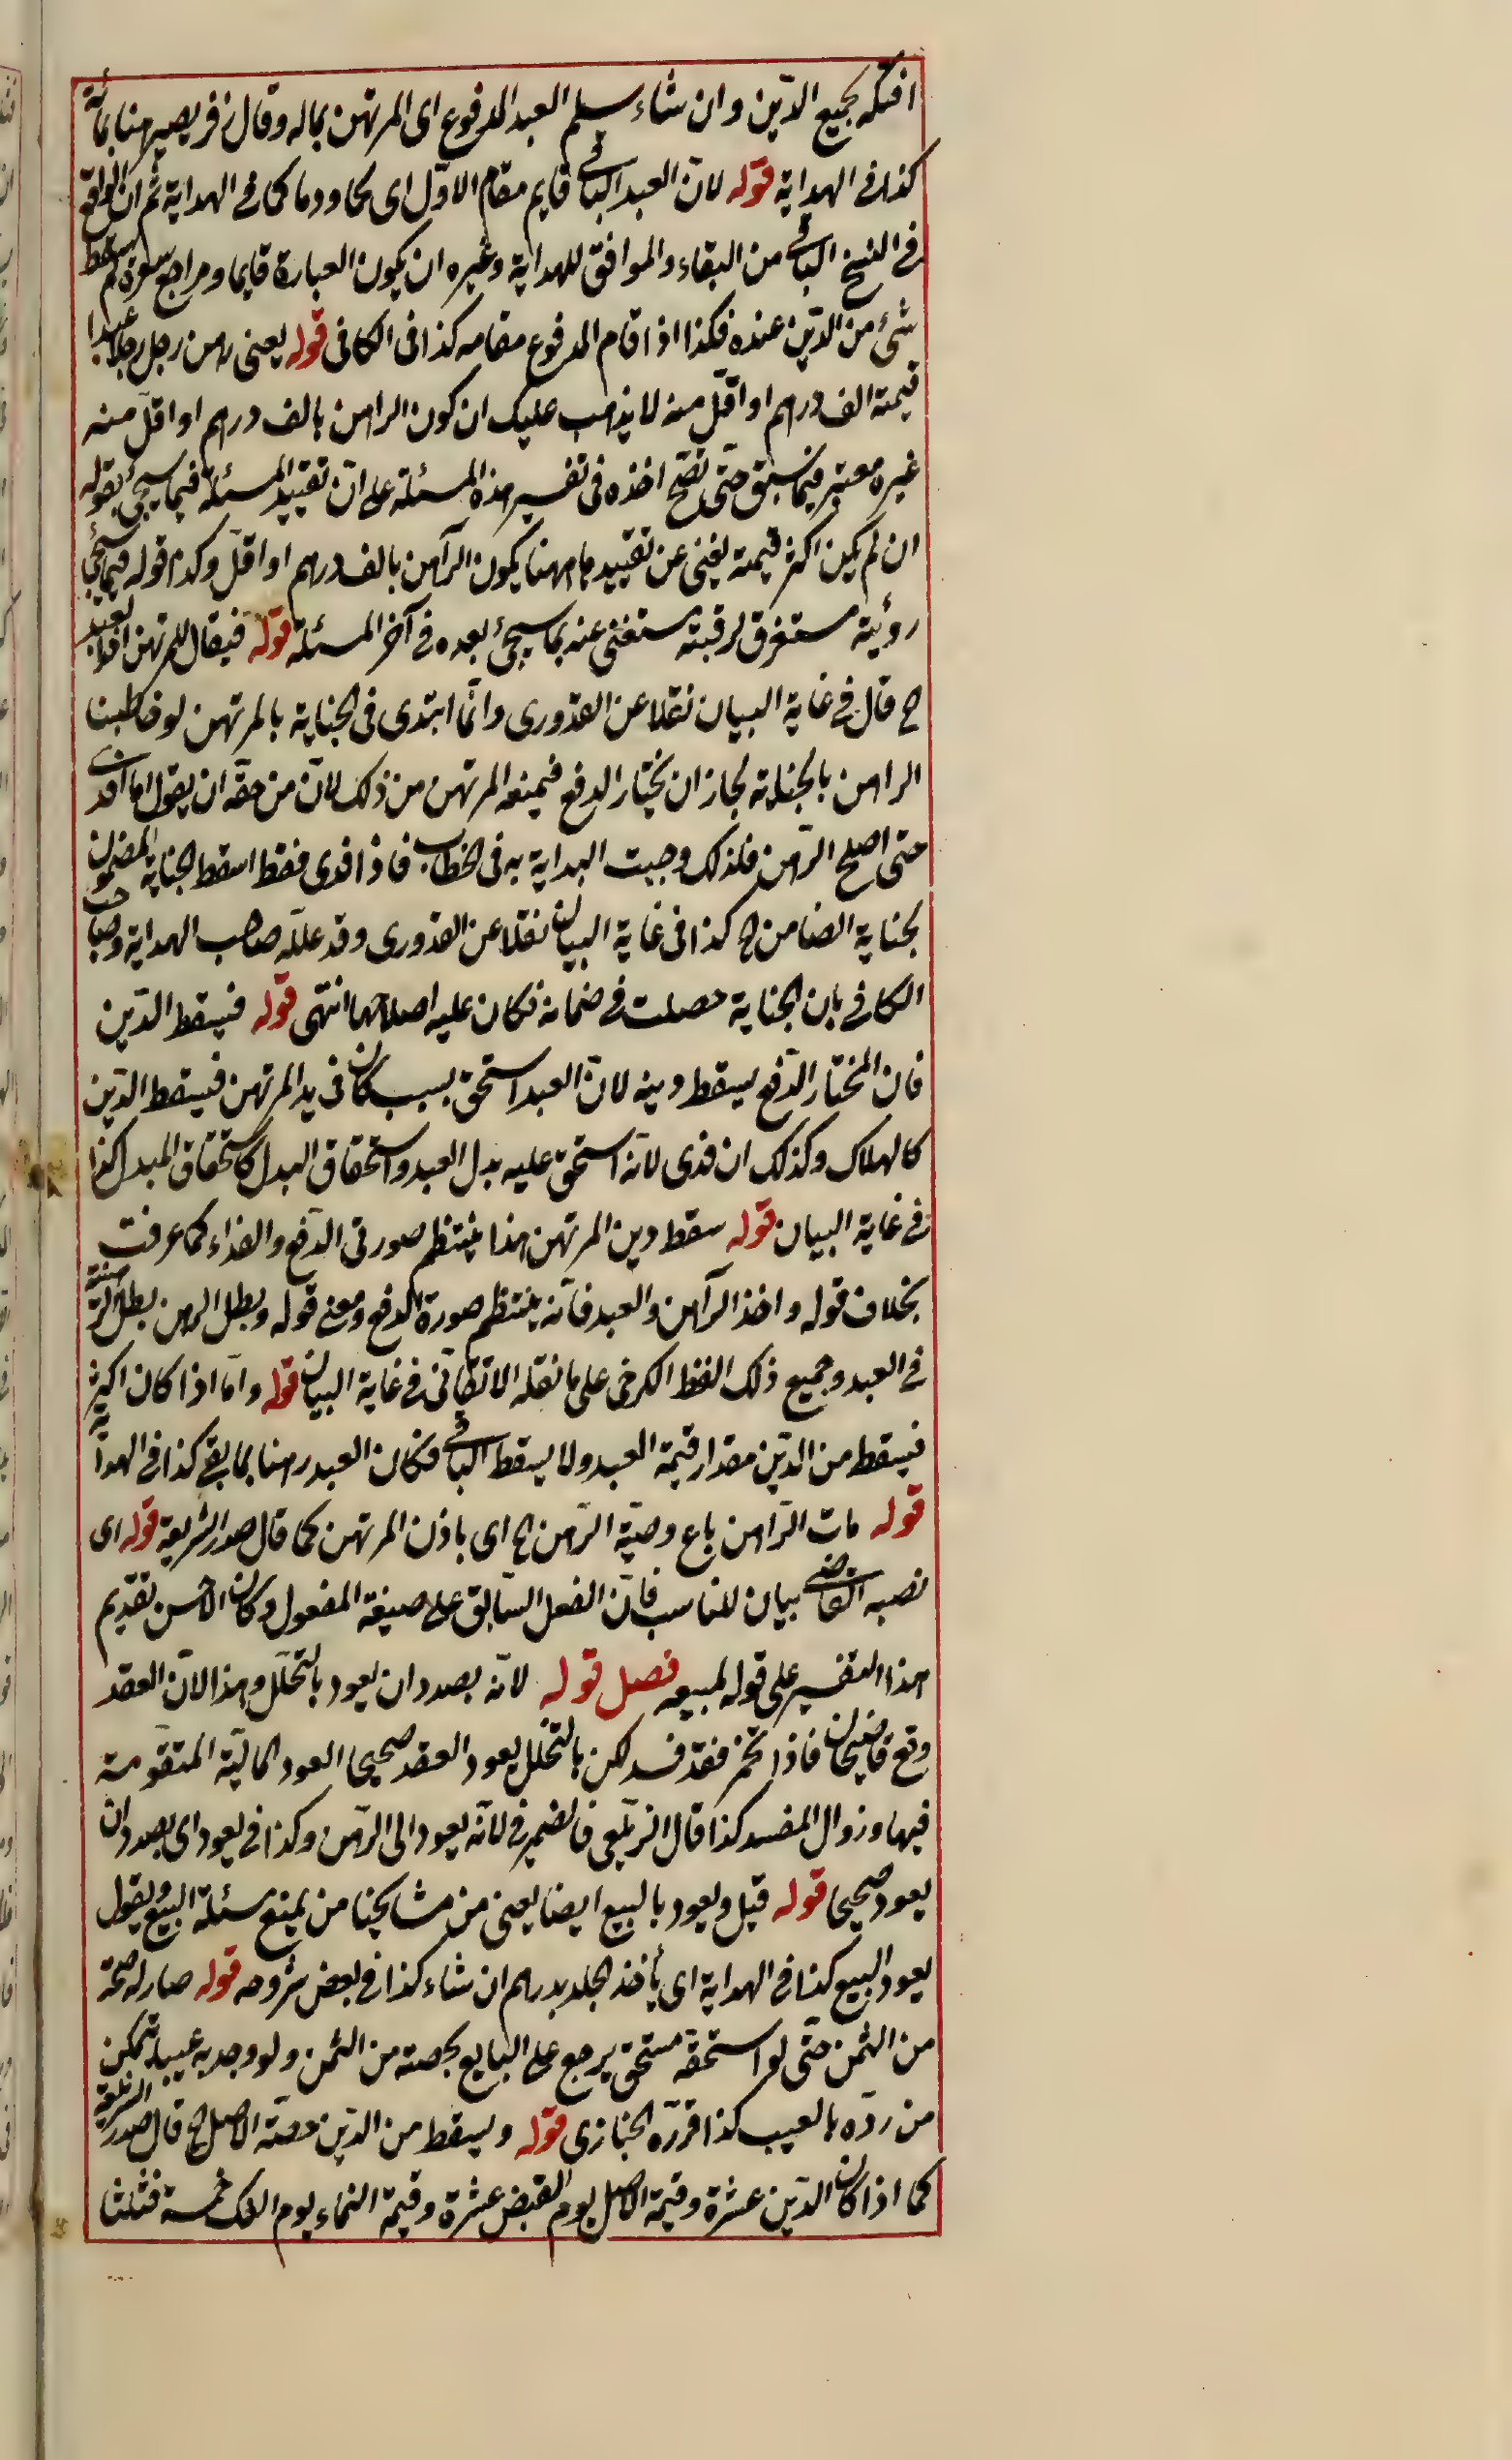 افتكه بجميع الدّين وان شاء سلم العبد المدفوع اى المرتهن بماله وقال زفر يصير رهنا بمائة
كذا فى الهداية قوله لانّ العبد الباقى قايم مقام الاوّل اى لحما ودما كما فى الهداية ثم ان الواقع
فى النسخ الباقى من البقاء والموافق للهداية وغيره ان يكون العبارة قايما ومراجع سعره لم يسقط
شئ من الدّين عنده فكذا اذا قام المدفوع مقامه كذا فى الكافى قوله يعنى رهن رجل رجلا عبدا
قيمته الف درهم او اقلّ منه لا يذهب عليك ان كون الراهن بالف درهم او اقلّ منه
غيره معتبر فيما سبق حتّى تصحّ اخذه فى تفسير هذه المسئلة على انّ تقييد المسئلة فيما سيجئ بقوله
ان لم يكن اكثر قيمته يغنى عن تقييد ما ههنا بكون الرّاهن بالف درهم او اقلّ وكذا قوله فيما سيجئ
روئية مستغرق لرقبته مستغنى عنه بما سيجئ بعده فى آخر المسئلة قوله فيقال للمرتهن افد العبد
ح قال فى غاية البيان نقلا عن القدورى وانّما ابتدى فى الجناية بالمرتهن لو خاطبنا
الراهن بالجناية لجاز ان يختار الدفع فيمنعه المرتهن من ذلك لانّ من حقّه ان يقول اما افدى
حتى اصلح الرّهن فلذلك وجبت البداية به فى الخطاب فاذا فدى فقط اسقط الجناية المضمون
بجناية الضامن ح كذا فى غاية البيان نقلا عن القدورى وقد علّله صاحب الهداية وصاحب
الكافى بان الجناية حصلت فى ضمانه فكان عليه اصلاحها انتهى قوله فيسقط الدّين
فان المختار الدّفع يسقط دينه لانّ العبد استحق بسبب كان فى يد المرتهن فيسقط الدّين
كالهلاك وكذلك ان فدى لانّه استحق عليه بدل العبد واستحقاق البدل كاستحقاق المبدل كذا
فى غاية البيان قوله سقط دين المرتهن هذا ينتظم صورتى الدّفع والفداء كما عرفت
بخلاف قوله واخذ الرّاهن والعبد فانّه ينتظم صورة الدفع ومعنى قوله وبطل الرهن بطل الرهنية
فى العبد وجميع ذلك الفظ الكرخى على ما نقله الاتقانّى فى غاية البيان قوله وامّا اذا كان اكثر
فيسقط من الدّين مقدار قيمة العبد ولا يسقط الباقى فكان العبد رهنا بما بقى كذا فى الهداية
قوله مات الرّاهن باع وصيّه الرّهن ح اى باذن المرتهن كما قال صدر الشريعة قوله اى
نصبه القاضى بيان للناسب فانّ الفعل السّابق على صيغة المفعول وكان الاحسن تقديم
هذا التفسير على قوله لمبيعه فصل قوله لانّه بصدد ان يعود بالتخلّل وهذا لانّ العقد
وقع قاضيخان فاذا تخمر فقد فسد لكن بالتخلل يعود العقد صحيحا العود الماليّة المتقوّمة
فيها وزوال المفسد كذا قال الزيلعى فالضمير فى لانّه يعود الى الرّهن وكذا فى يعود اى بصدد ان
يعود صحيحا قوله قيل ويعود بالبيع ايضا يعنى من مشايخنا من يمنع مسئلة البيع ويقول
يعود البيع كذا فى الهداية اى يأخذ الجلد بدرهم ان شاء كذا فى بعض شروحه قوله صار له حصّة
من الثمن حتّى لو استحقّه مستحق يرجع على البايع بحصته من الثمن ولو وجد به عيبا يتمكن
من ردّه بالعيب كذا قررّه الخبازى قوله ويسقط من الدّين حصّته الاصل ح قال صدر الشريعة
كما اذا كان الدّين عشرة وقيمة الاصل يوم القبض عشرة وقيمة النماء يوم الفك خمسة فثلثا